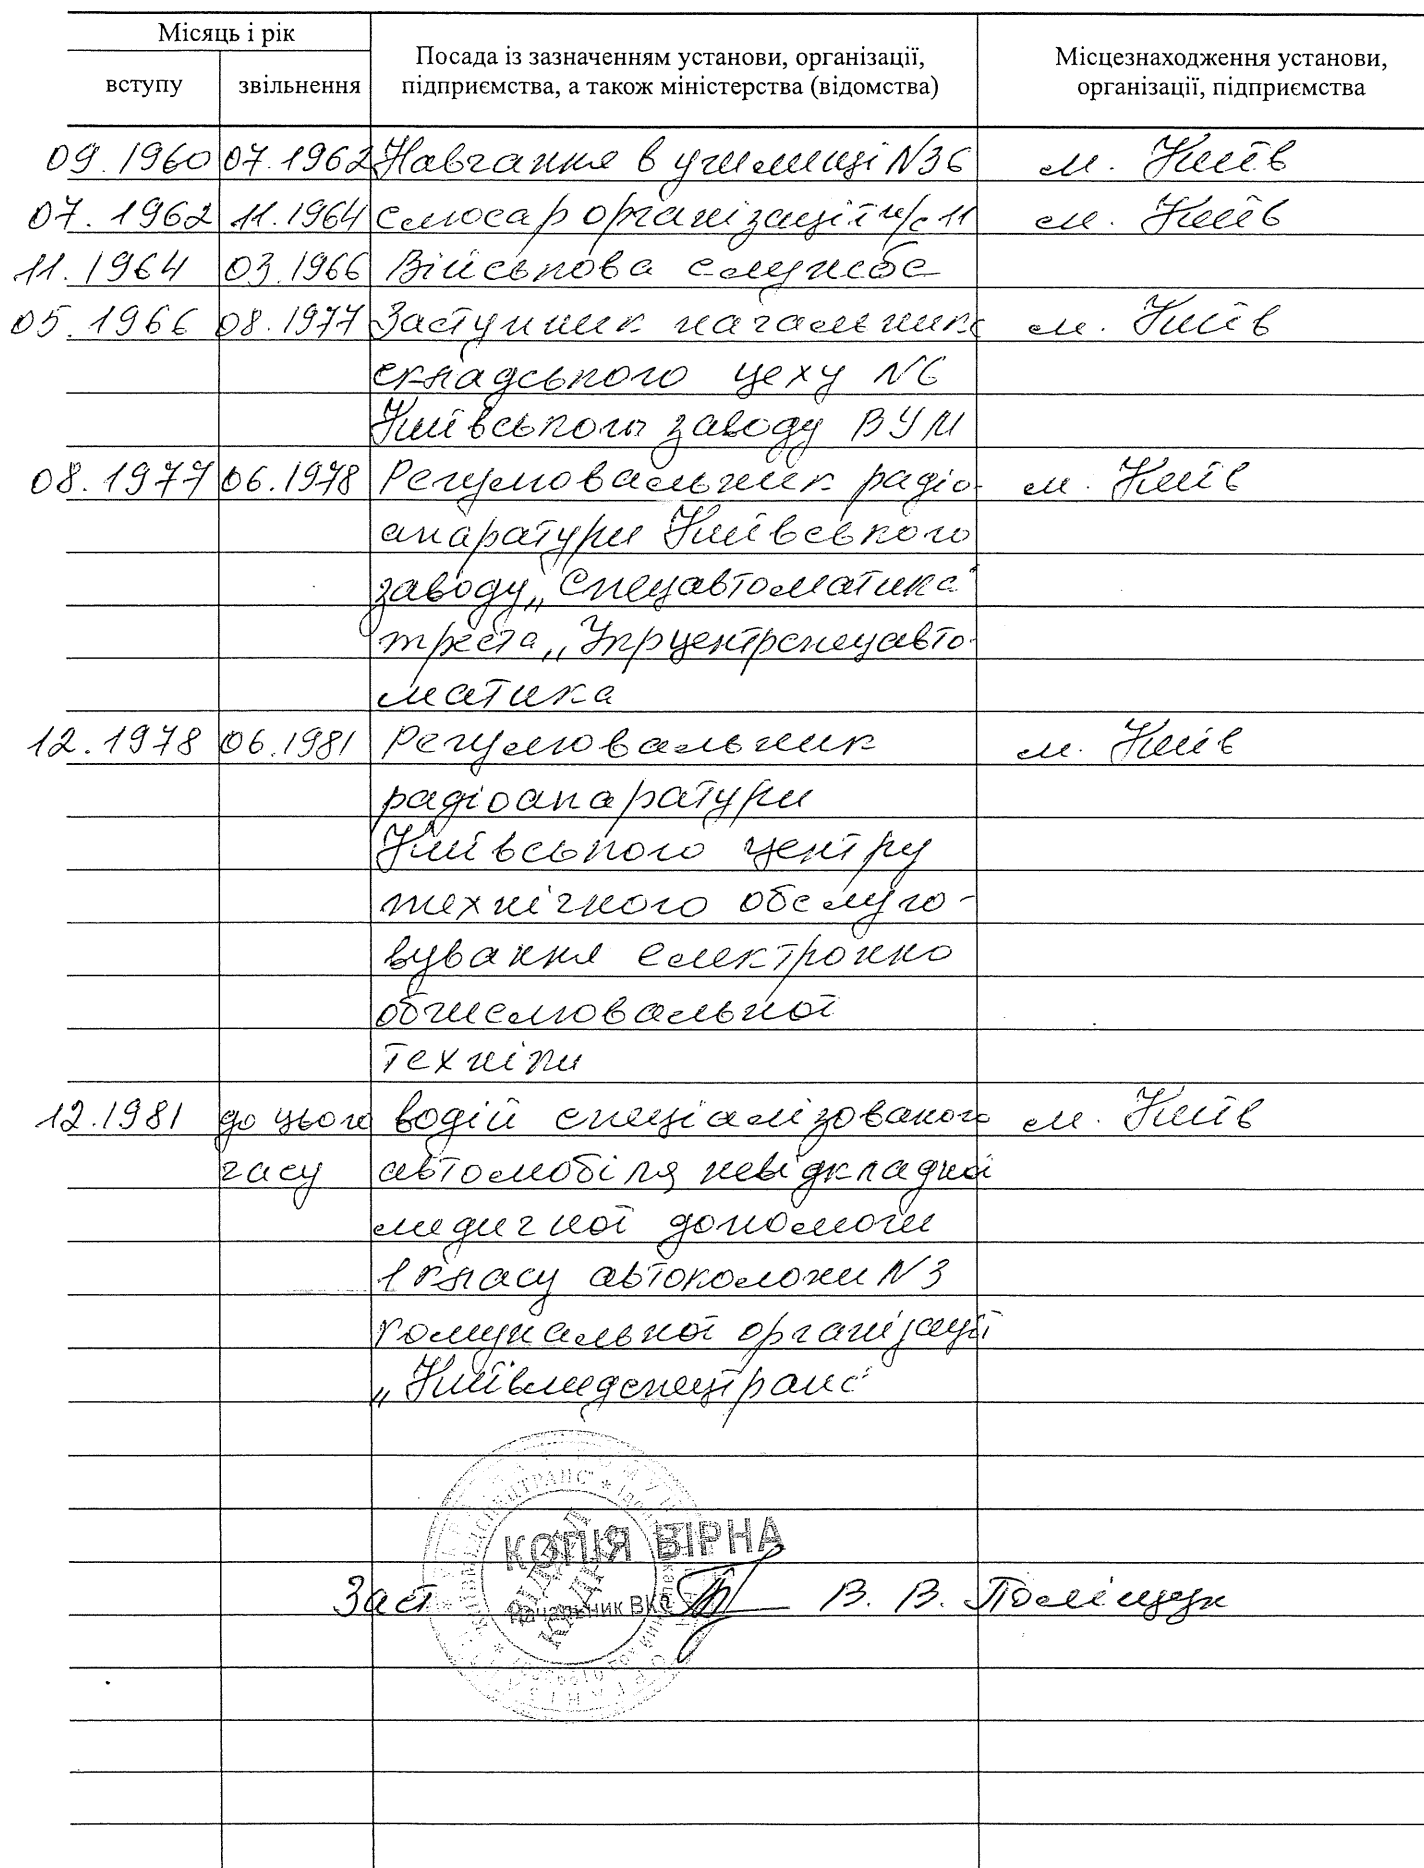 Місяць і рік
вступу звільнення Посада із зазначенням установи, організації, підприємства, а також міністерства (відомства) Місцезнаходження установи, організації, підприємства
09.1960 07.1962 Навчання в училищі №36 м. Київ
07.1962 11.1964 слюсар організації п/с 11 м. Київ
11.1964 03.1966 Військова служба
05.1966 08.1977 Заступник начальника м. Київ
складського цеху №6
Київського заводу ВУМ
08.1977 06.1978 Регулювальник радіо- м. Київ
апаратури Київського
заводу „Спецавтоматика"
треста „Укрцентрспецавто-
матика
12.1978 06.1981 Регулювальник м. Київ
радіоапаратури
Київського центру
технічного обслуго-
вування електронно
обчислювальної
техніки
12.1981 до цього водій спеціалізованого м. Київ
часу автомобіля невідкладної
медичної допомоги
1 класу автоколони №3
комунальної організації
„Київмедспецтранс"
КОПІЯ ВІРНА
Заст Начальник ВК В. В. Поліщук
ВІДДІЛ
КАДРІВ